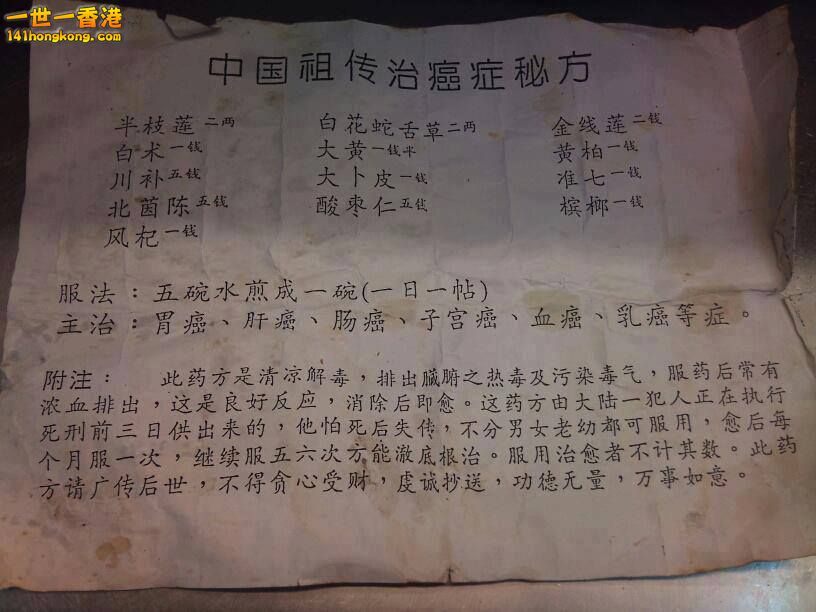 一世一香港
141hongkong.com
中国祖传治癌症秘方
半枝莲二两 白花蛇舌草二两 金线莲二钱
白术一钱 大黄一钱半 黄柏一钱
川补五钱 大卜皮一钱 准七一钱
北茵陈五钱 酸枣仁五钱 槟榔一钱
风杞一钱
服法：五碗水煎成一碗(一日一帖)
主治：胃癌、肝癌、肠癌、子宫癌、血癌、乳癌等症。
附注： 此药方是清凉解毒，排出臓腑之热毒及污染毒气，服药后常有
浓血排出，这是良好反应，消除后即愈。这药方由大陆一犯人正在执行
死刑前三日供出来的，他怕死后失传，不分男女老幼都可服用，愈后每
个月服一次，继续服五六次方能澈底根治。服用治愈者不计其数。此药
方请广传后世，不得贪心受财，虔诚抄送，功德无量，万事如意。